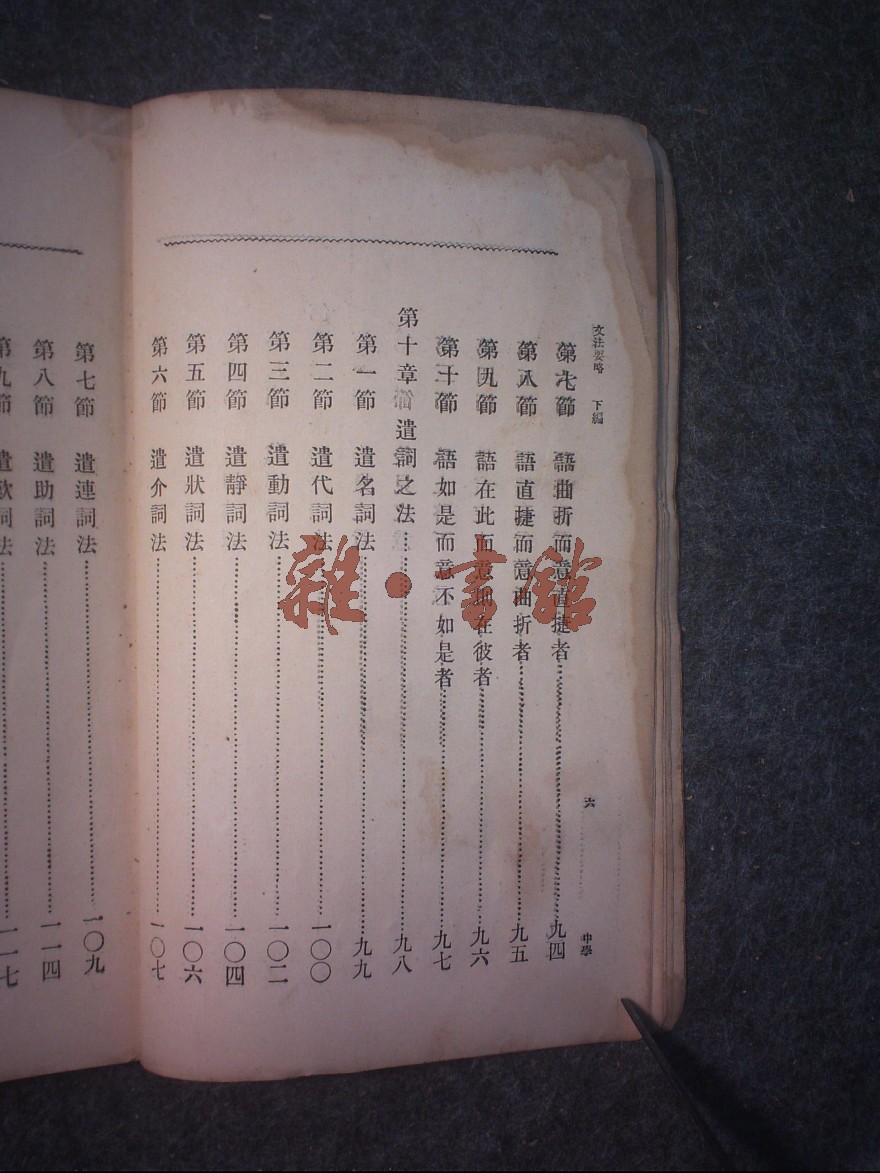 文法要略 下編 六 中學
第七節 語曲折而意直捷者 九四
第八節 語直捷而意曲折者 九五
第九節 語在此而意則在彼者 九六
第十節 語如是而意不如是者 九七
第十章 遣詞之法 九八
第一節 遣名詞法 九九
第二節 遣代詞法 一〇〇
第三節 遣動詞法 一〇二
第四節 遣靜詞法 一〇四
第五節 遣狀詞法 一〇六
第六節 遣介詞法 一〇七
第七節 遣連詞法 一〇九
第八節 遣助詞法 一一四
第九節 遣歎詞法 一一七
雜·書館